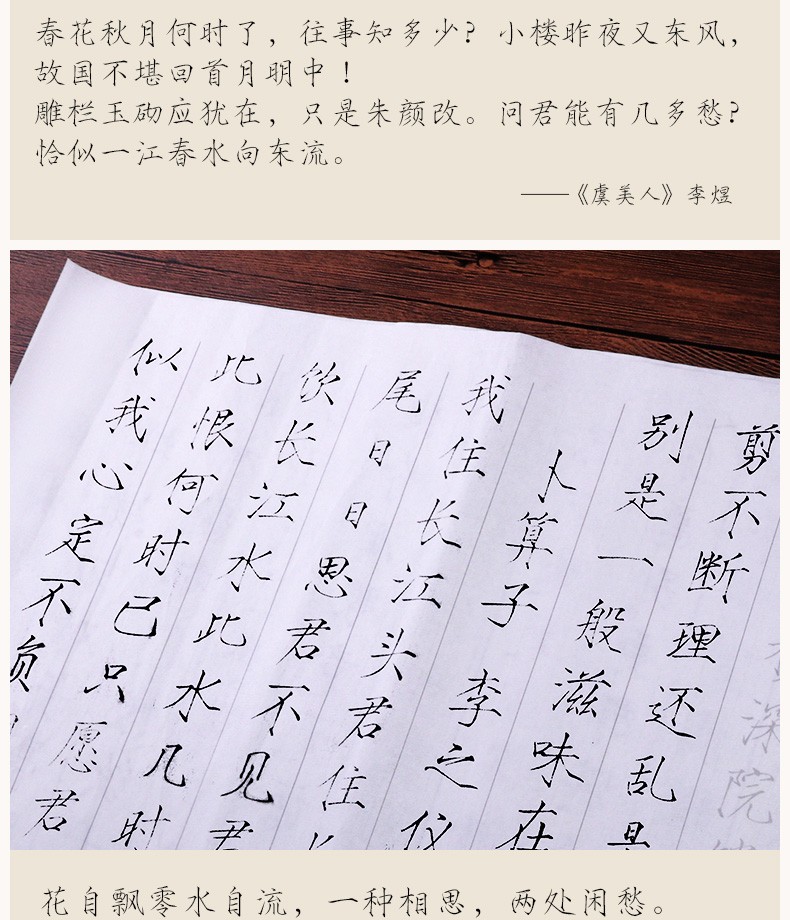 春花秋月何时了，往事知多少？小楼昨夜又东风，
故国不堪回首月明中！
雕栏玉砌应犹在，只是朱颜改。问君能有几多愁？
恰似一江春水向东流。
——《虞美人》李煜
深院
剪不断理还乱是
别是一般滋味在
卜算子 李之仪
我住长江头君住
尾日日思君不见君
饮长江水此水几时
此恨何时已只愿君
似我心定不负
花自飘零水自流，一种相思，两处闲愁。